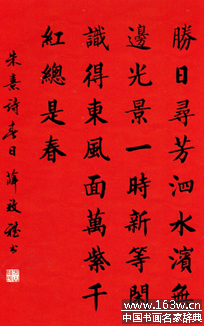 勝日尋芳泗水濱無
邊光景一時新等閒
識得東風面萬紫千
紅總是春
朱熹詩春日 薛政 書
www.163w.cn
中国书画名家辞典